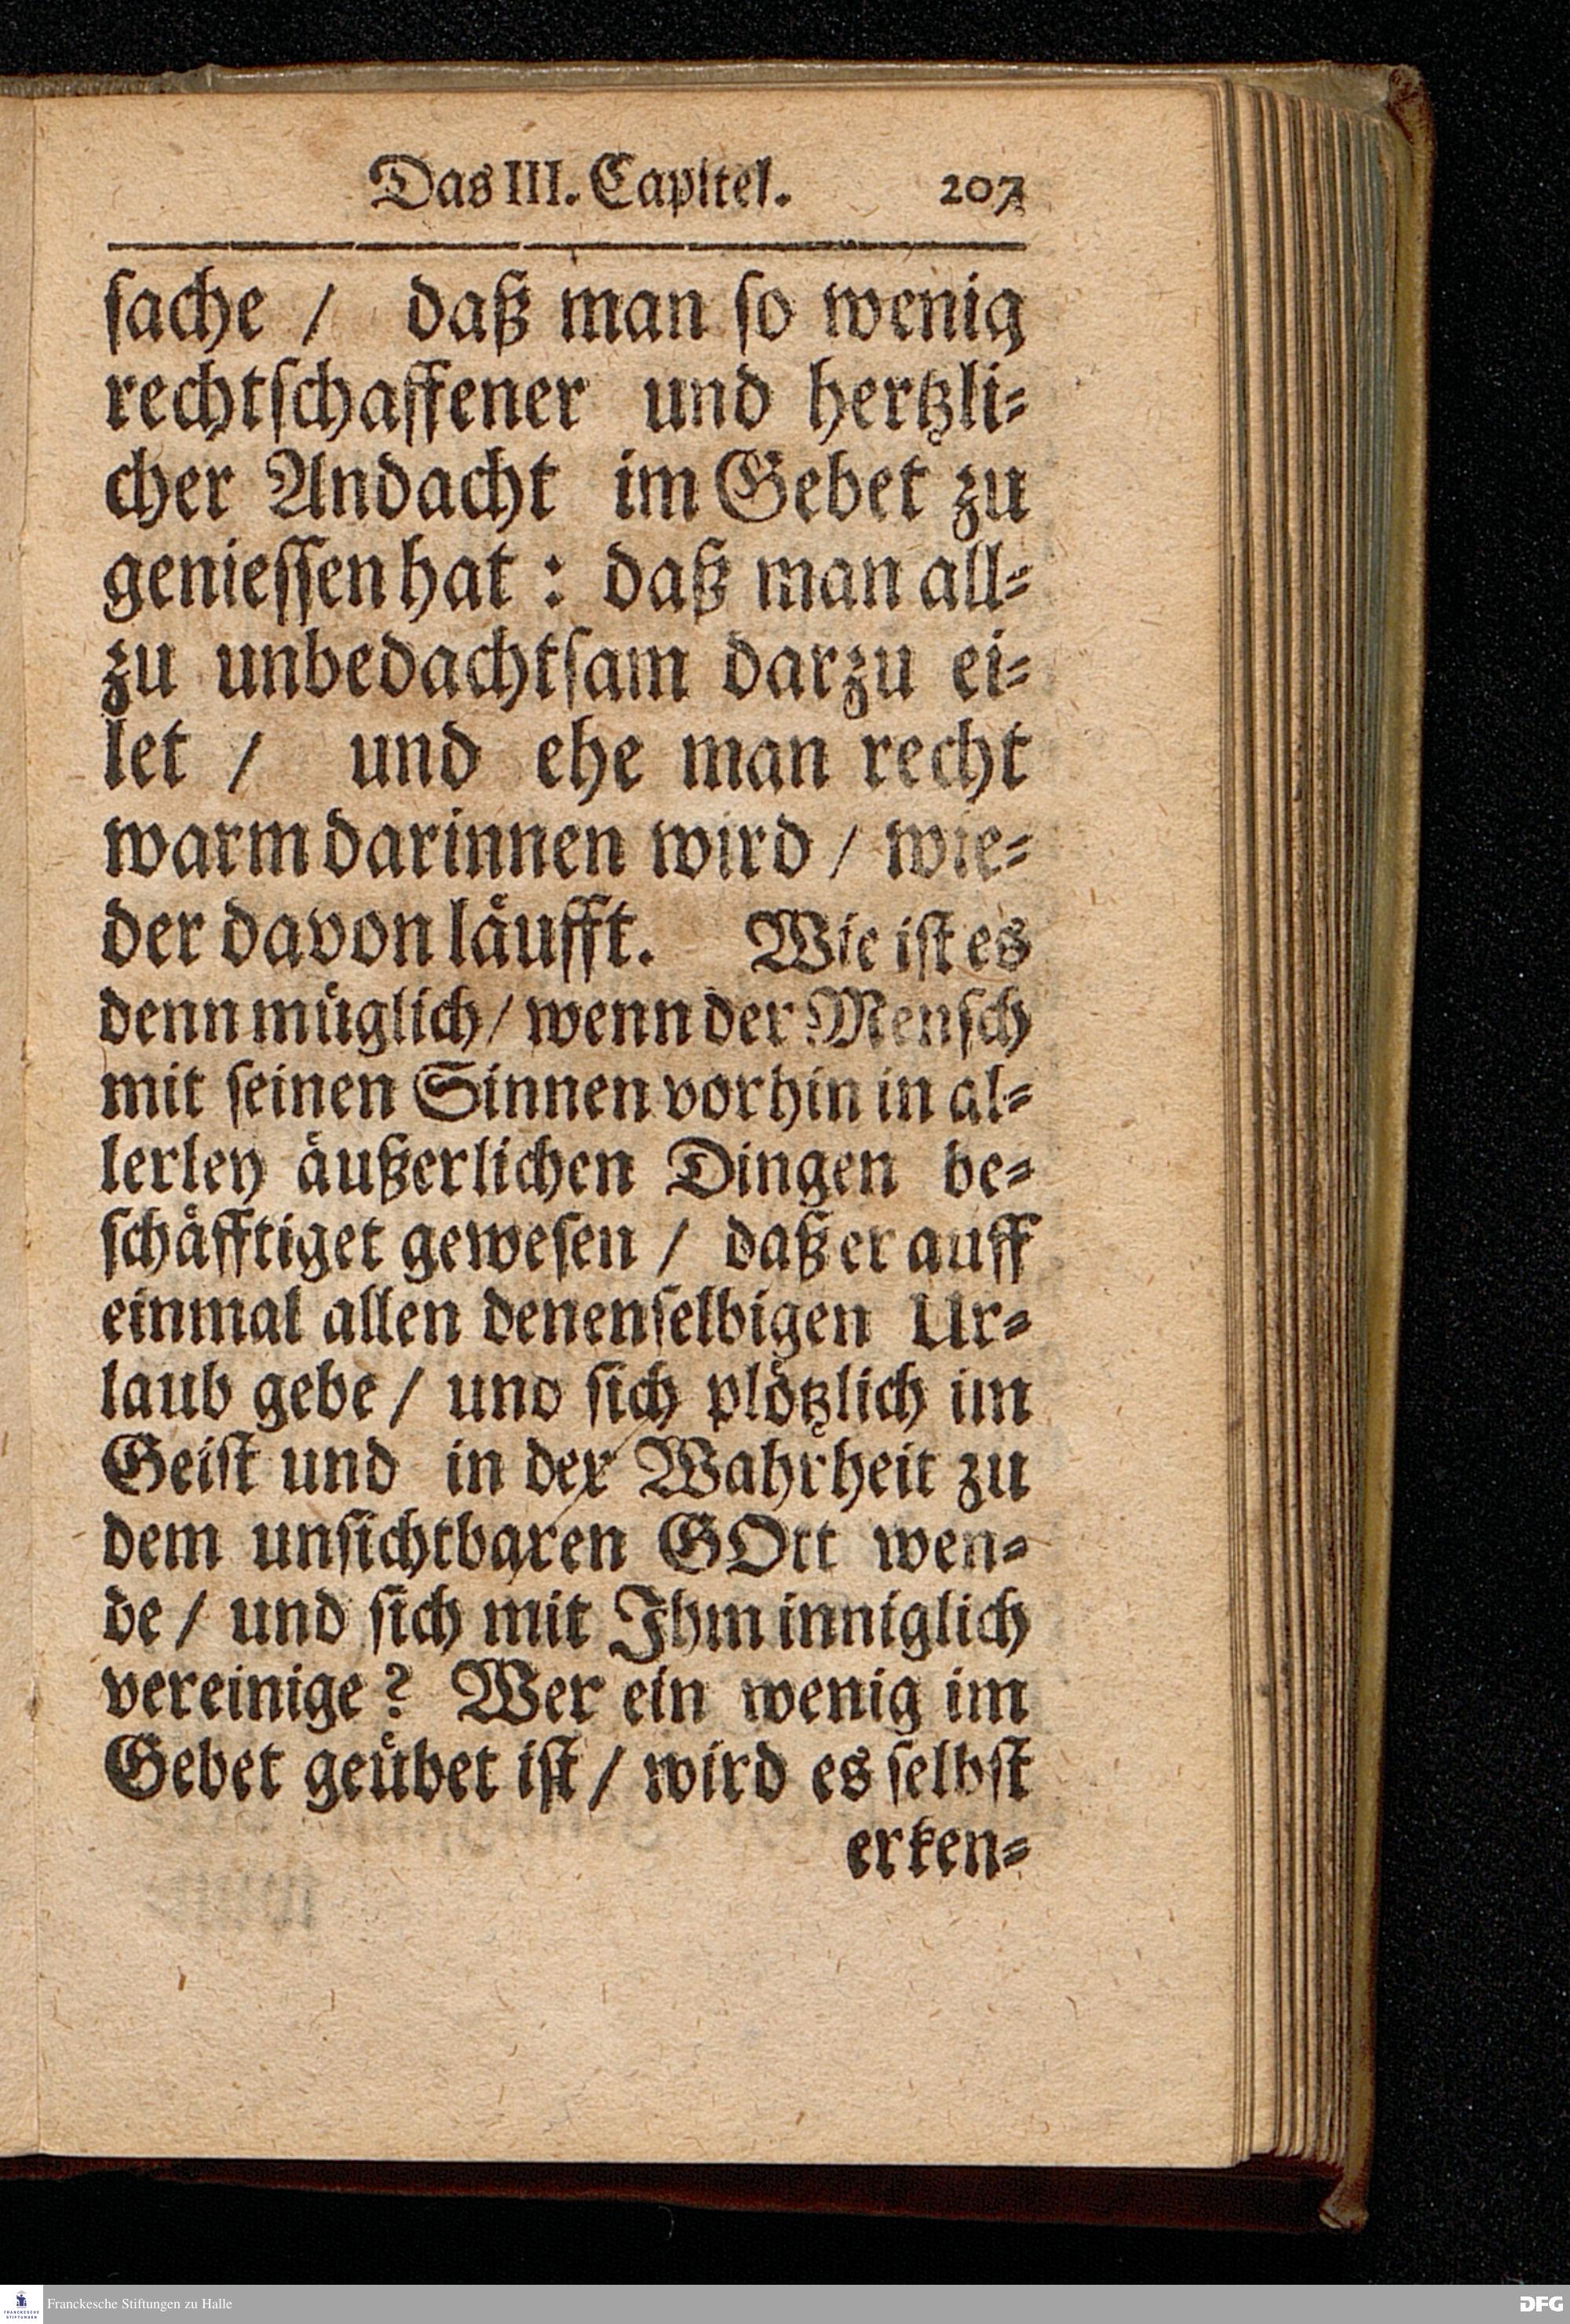 Das III. Capitel. 207
sache / daß man so wenig
rechtschaffener und hertzli-
cher Andacht im Gebet zu
geniessen hat : daß man all-
zu unbedachtsam darzu ei-
let / und ehe man recht
warm darinnen wird / wie-
der davon läufft. Wie ist es
denn müglich / wenn der Mensch
mit seinen Sinnen vorhin in al-
lerley äußerlichen Dingen be-
schäfftiget gewesen / daß er auff
einmal allen denenselbigen Ur-
laub gebe / und sich plötzlich im
Geist und in der Wahrheit zu
dem unsichtbaren GOtt wen-
de / und sich mit Ihm inniglich
vereinige? Wer ein wenig im
Gebet geübet ist / wird es selbst
erken-
FRANCKESCHE STIFTUNGEN
Franckesche Stiftungen zu Halle
DFG